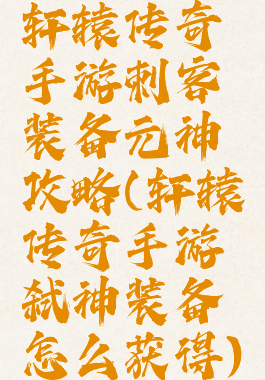 轩辕传奇
手游刺客
装备元神
攻略(轩辕
传奇手游
弑神装备
怎么获得)